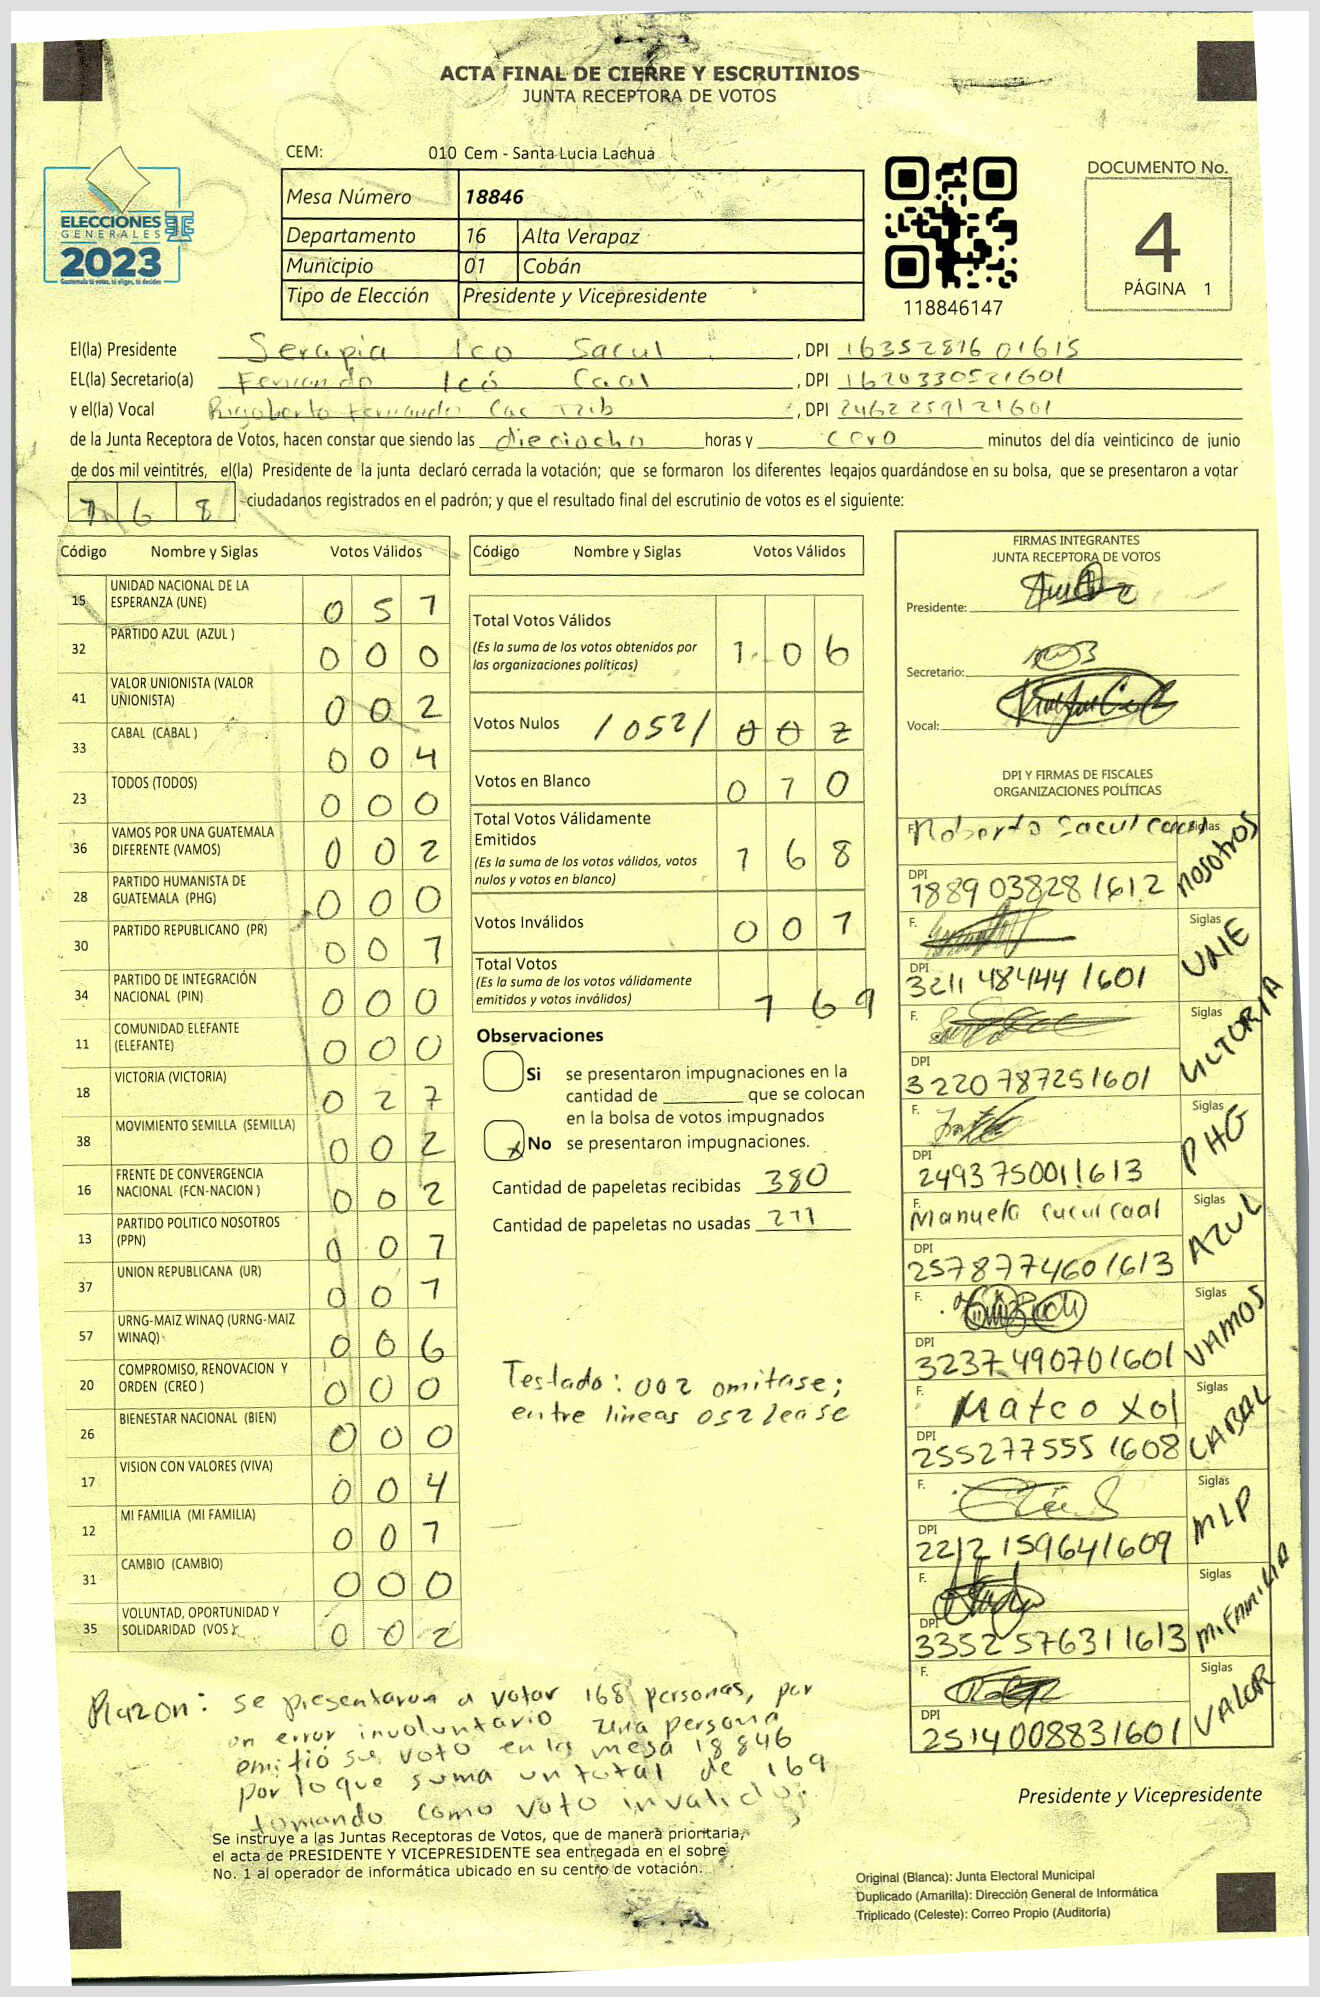 ACTA FINAL DE CIERRE Y ESCRUTINIOS
JUNTA RECEPTORA DE VOTOS
CEM: 010 Cem - Santa Lucia Lachua
Mesa Número 18846
Departamento 16 Alta Verapaz
Municipio 01 Cobán
Tipo de Elección Presidente y Vicepresidente
ELECCIONES
GENERALES
2023
Guatemala tú votas, tú eliges, tú decides
118846147
DOCUMENTO No.
4
PÁGINA 1
El(la) Presidente Serapia Ico Sacul , DPI 1635281601615
EL(la) Secretario(a) Fernando Icó Caal , DPI 1620330521601
y el(la) Vocal Rigoberto Fernando Cac Tzib , DPI 2462259121601
de la Junta Receptora de Votos, hacen constar que siendo las dieciocho horas y cero minutos del día veinticinco de junio
de dos mil veintitrés, el(la) Presidente de la junta declaró cerrada la votación; que se formaron los diferentes legajos guardándose en su bolsa, que se presentaron a votar
168 ciudadanos registrados en el padrón; y que el resultado final del escrutinio de votos es el siguiente:
Código Nombre y Siglas Votos Válidos
15 UNIDAD NACIONAL DE LA ESPERANZA (UNE) 051
32 PARTIDO AZUL (AZUL ) 000
41 VALOR UNIONISTA (VALOR UNIONISTA) 002
33 CABAL (CABAL ) 004
23 TODOS (TODOS) 000
36 VAMOS POR UNA GUATEMALA DIFERENTE (VAMOS) 002
28 PARTIDO HUMANISTA DE GUATEMALA (PHG) 000
30 PARTIDO REPUBLICANO (PR) 001
34 PARTIDO DE INTEGRACIÓN NACIONAL (PIN) 000
11 COMUNIDAD ELEFANTE (ELEFANTE) 000
18 VICTORIA (VICTORIA) 027
38 MOVIMIENTO SEMILLA (SEMILLA) 002
16 FRENTE DE CONVERGENCIA NACIONAL (FCN-NACION ) 002
13 PARTIDO POLITICO NOSOTROS (PPN) 001
37 UNION REPUBLICANA (UR) 001
57 URNG-MAIZ WINAQ (URNG-MAIZ WINAQ) 006
20 COMPROMISO, RENOVACION Y ORDEN (CREO ) 000
26 BIENESTAR NACIONAL (BIEN) 000
17 VISION CON VALORES (VIVA) 004
12 MI FAMILIA (MI FAMILIA) 001
31 CAMBIO (CAMBIO) 000
35 VOLUNTAD, OPORTUNIDAD Y SOLIDARIDAD (VOS ) 002
Código Nombre y Siglas Votos Válidos
Total Votos Válidos 106
(Es la suma de los votos obtenidos por
las organizaciones políticas)
Votos Nulos /052/ 002
Votos en Blanco 010
Total Votos Válidamente
Emitidos 168
(Es la suma de los votos válidos, votos
nulos y votos en blanco)
Votos Inválidos 001
Total Votos
(Es la suma de los votos válidamente
emitidos y votos inválidos) 169
Observaciones
Si se presentaron impugnaciones en la
cantidad de ________ que se colocan
en la bolsa de votos impugnados
x No se presentaron impugnaciones.
Cantidad de papeletas recibidas 380
Cantidad de papeletas no usadas 211
Testado: 002 omitase;
entre lineas 052 lease
FIRMAS INTEGRANTES
JUNTA RECEPTORA DE VOTOS
Presidente:
Secretario:
Vocal:
DPI Y FIRMAS DE FISCALES
ORGANIZACIONES POLÍTICAS
F. Roberto Sacul Caal Siglas NOSOTROS
DPI 1889038281612
F. Siglas UNE
DPI 3211484441601
F. Siglas VICTORIA
DPI 3220787251601
F. Siglas PHG
DPI 2493750011613
F. Manuela Cucul Caal Siglas AZUL
DPI 2578774601613
F. Siglas VAMOS
DPI 3237490701601
F. Mateo Xol Siglas CABAL
DPI 2552775551608
F. Siglas MLP
DPI 2212159641609
F. Siglas Mi FAMILIA
DPI 3352576311613
F. Siglas VALOR
DPI 2514008831601
Razon: se presentaron a votar 168 personas, por
un error involuntario una persona
emitió su voto en la mesa 18846
por lo que suma un total de 169
tomando como voto invalido.
Presidente y Vicepresidente
Se instruye a las Juntas Receptoras de Votos, que de manera prioritaria,
el acta de PRESIDENTE Y VICEPRESIDENTE sea entregada en el sobre
No. 1 al operador de informática ubicado en su centro de votación.
Original (Blanca): Junta Electoral Municipal
Duplicado (Amarilla): Dirección General de Informática
Triplicado (Celeste): Correo Propio (Auditoría)